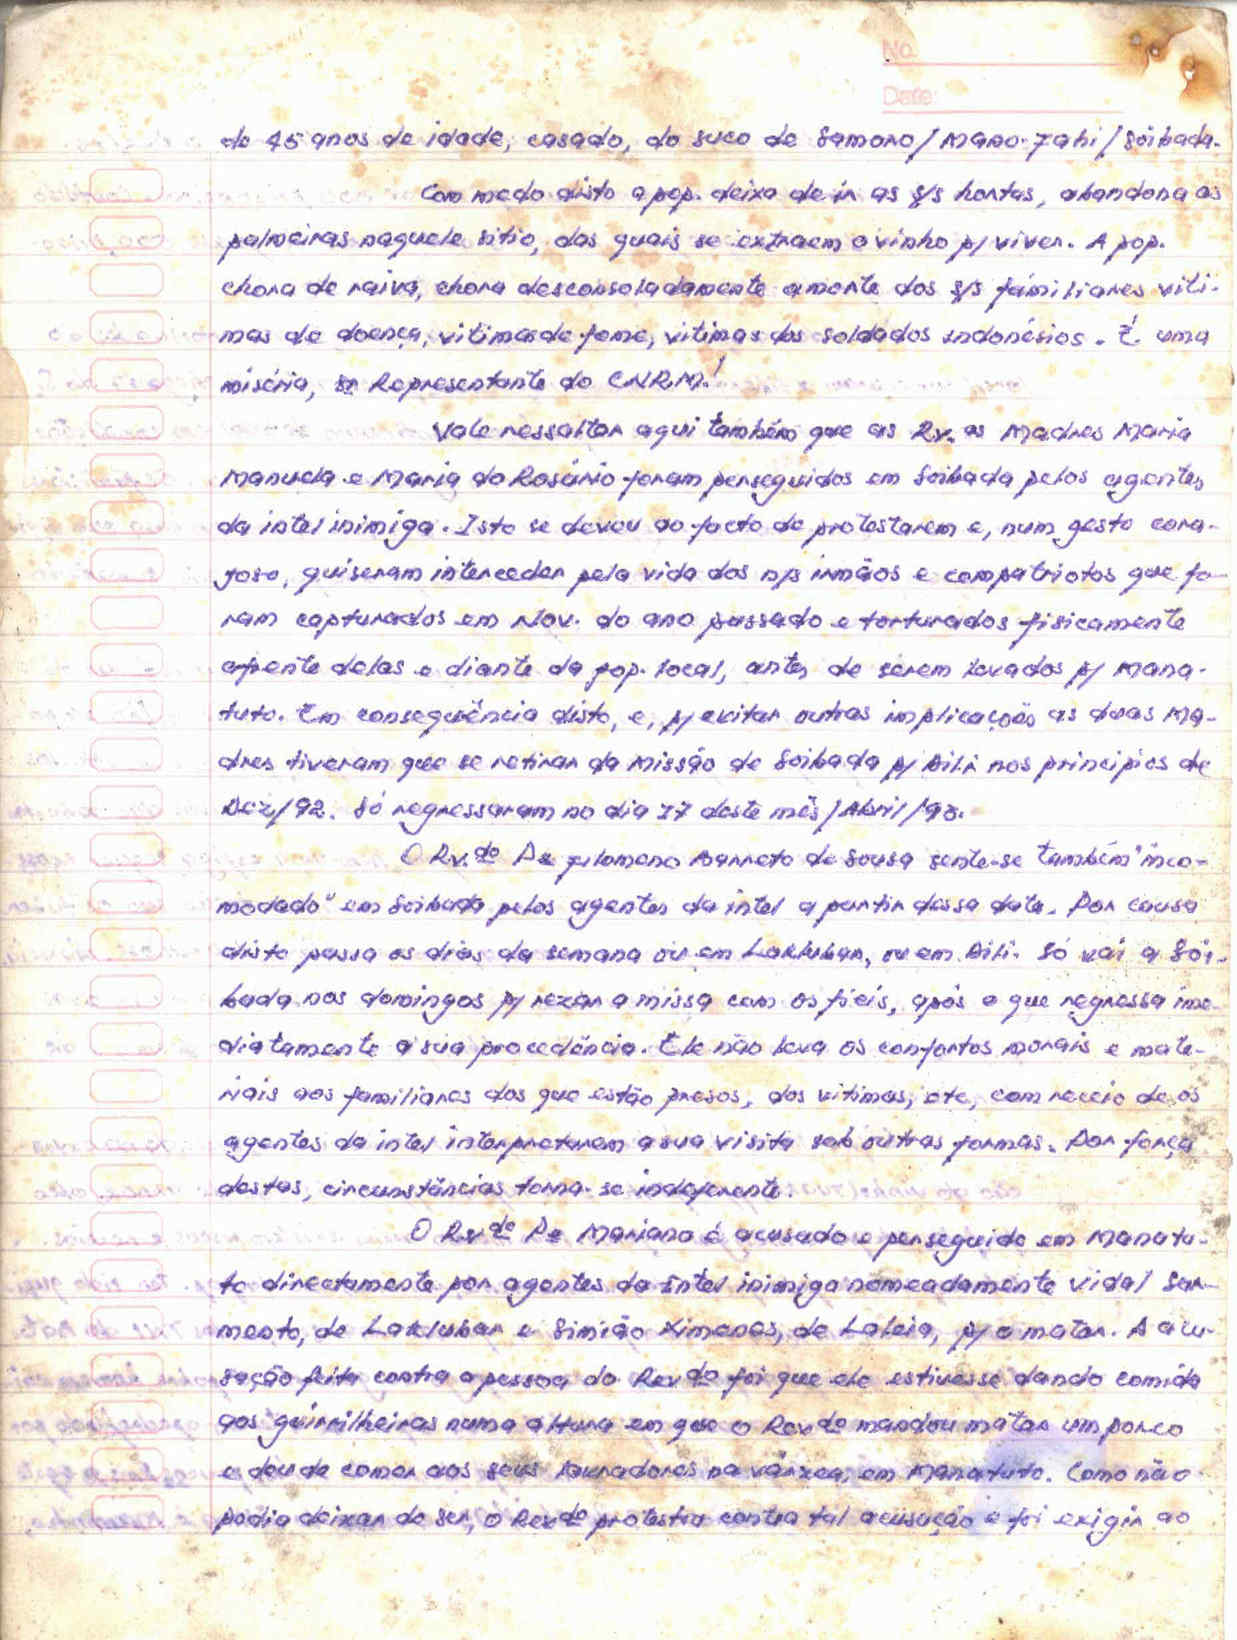 No.
Date:
de 45 anos de idade, casado, do suco de Samoro/Mano-Fahi/Soibada.
Com medo disto a pop. deixa de ir as s/s hortas, abandona as
palmeiras naquele sitio, das quais se extraem o vinho p/ viver. A pop.
chora de raiva, chora desconsoladamente a morte dos s/s familiares viti-
mas de doença, vitimas de fome, vitimas dos soldados indonésios. É uma
miséria, Sr Representante do CNRM!
Vale ressaltar aqui também que as Rv.as Madres Maria
Manuela e Maria do Rosário foram perseguidos em Soibada pelos agentes
da intel inimiga. Isto se deveu ao facto de protestarem e, num gesto cora-
joso, quiseram interceder pela vida dos n/s irmãos e compatriotas que fo-
ram capturados em Nov. do ano passado e torturados fisicamente
afrente delas e diante da pop. local, antes de serem levados p/ Mana-
tuto. Em consequência disto, e, p/ evitar outras implicações as duas Ma-
dres tiveram que se retirar da Missão de Soibada p/ Dili nos principios de
Dez/92. Só regressaram no dia 17 deste mês/Abril/93.
O Rv.do Pe Filomeno Barreto de Sousa sente-se também "inco-
modado" em Soibada pelos agentes da intel a partir dessa data. Por causa
disto passa os dias da semana ou em Lakluban, ou em Dili. Só vai a Soi-
bada nos domingos p/ rezar a missa com os fieis, após o que regressa ime-
diatamente a sua procedência. Ele não leva os confortos morais e mate-
riais aos familiares dos que estão presos, dos vitimas, etc, com receio de os
agentes da intel interpretarem a sua visita sob outras formas. Por força
destas, circunstâncias torna-se indeferente.
O Rv.do Pe Mariano é acusado e perseguido em Manatu-
to directamente por agentes da Intel inimiga nomeadamente Vidal Sar-
mento, de Lakluban e Simião Ximenes, de Laleia, p/ o matar. A acu-
sação feita contra a pessoa do Rev.do foi que ele estivesse dando comida
aos guirrilheiros numa altura em que o Rev.do mandou matar um porco
e deu de comer aos seus lavradores na várzea, em Manatuto. Como não
podia deixar de ser, o Rev.do protestra contra tal acusação e foi exigir ao